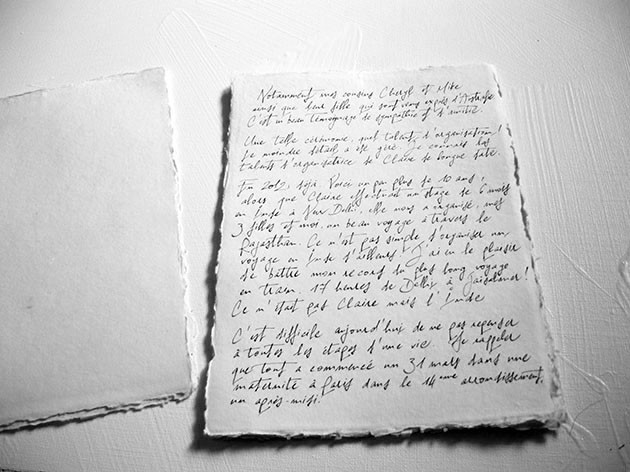 Notamment mes cousins Cheryl et Mike
ainsi que leur fille qui sont venus exprès d'Australie
C'est un beau témoignage de sympathie et d'amitié.
Une telle cérémonie, quel talent d'organisation !
Le moindre détail a été géré. Je connais les
talents d'organisatrice de Claire de longue date.
En 2012, déjà. Voici un peu plus de 10 ans,
alors que Claire effectuait un stage de 6 mois
en Inde à New Delhi, elle nous a organisé, mes
3 filles et moi, un beau voyage à travers le
Rajasthan. Ce n'est pas simple d'organiser un
voyage en Inde d'ailleurs ! J'ai eu le plaisir
de battre mon record du plus long voyage
en train. 17 heures de Delhi à Jaisalmer !
Ce n'était pas Claire mais l'Inde
C'est difficile aujourd'hui de ne pas repenser
à toutes les étapes d'une vie. Me rappeler
que tout a commencé un 31 mars dans une
maternité à Paris dans le 14ème arrondissement,
un après-midi.